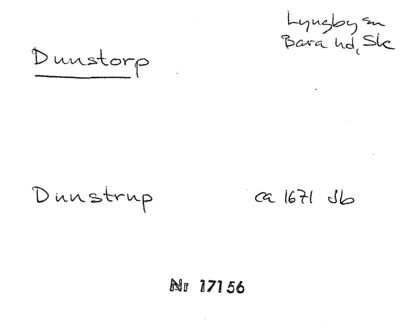 Lyngby sn
Bara hd, Sk
Dunstorp
Dunstrup ca 1671 Jb
Nr 17156